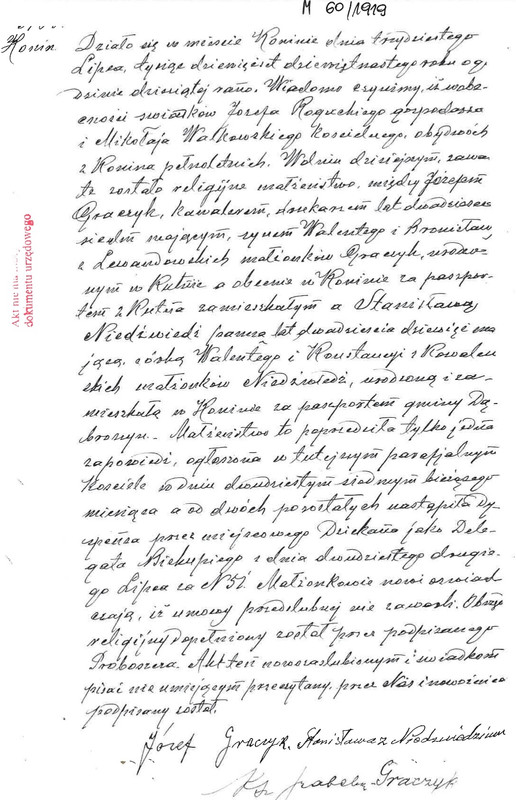 M 60/1919
Konin
Działo się w mieście Koninie dnia trzydziestego
Lipca, tysiąc dziewięćset dziewiętnastego roku o go
dzinie dziesiątej rano. Wiadomo czynimy, iż w obec
ności świadków Józefa Roguckiego gospodarza
i Mikołaja Walkowskiego kościelnego, obydwóch
z Konina pełnoletnich. W dniu dzisiejszym, zawar
te zostało religijne małżeństwo, między Józefem
Graczyk, kawalerem, drukarzem lat dwadzieścia
siedm mającym, synem Walentego i Bronisławy
z Lewandowskich małżonków Graczyk, urodzo
nym w Kutnie a obecnie w Koninie za paszpor
tem z Kutna zamieszkałym a Stanisławą
Niedźwiedź panną lat dwadzieścia dziewięć ma
jącą, córką Walentego i Konstancyi z Kowalew
skich małżonków Niedźwiedź, urodzoną i za-
mieszkałą w Koninie za paszportem gminy Dą-
broszyn. Małżeństwo to poprzedziła tylko jedna
zapowiedź, ogłoszona w tutejszym parafjalnym
Kościele w dniu dwudziestym siódmym bieżącego
miesiąca a od dwóch pozostałych nastąpiła dy-
spensa przez miejscowego Dziekana jako Dele-
gata Biskupiego z dnia dwudziestego drugie-
go Lipca za N 51. Małżonkowie nowi oświad
czają, iż umowy przedślubnej nie zawarli. Obrzęd
religijny dopełniony został przez podpisanego
Proboszcza. Akt ten nowozaślubionym i świadkom
pisać nie umiejącym przeczytany, przez Nas i nowożeńców
podpisany został.
Józef Graczyk. Stanisława z Niedźwiedziów
Graczyk
Ks
Akt nie ma
dokumentu urzędowego